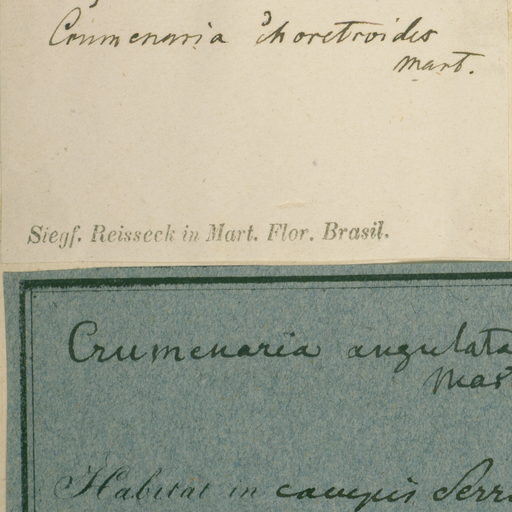 Crumenaria choretroides
Mart.
Siegf. Reisseck in Mart. Flor. Brasil.
Crumenaria angulata
Habitat in campis